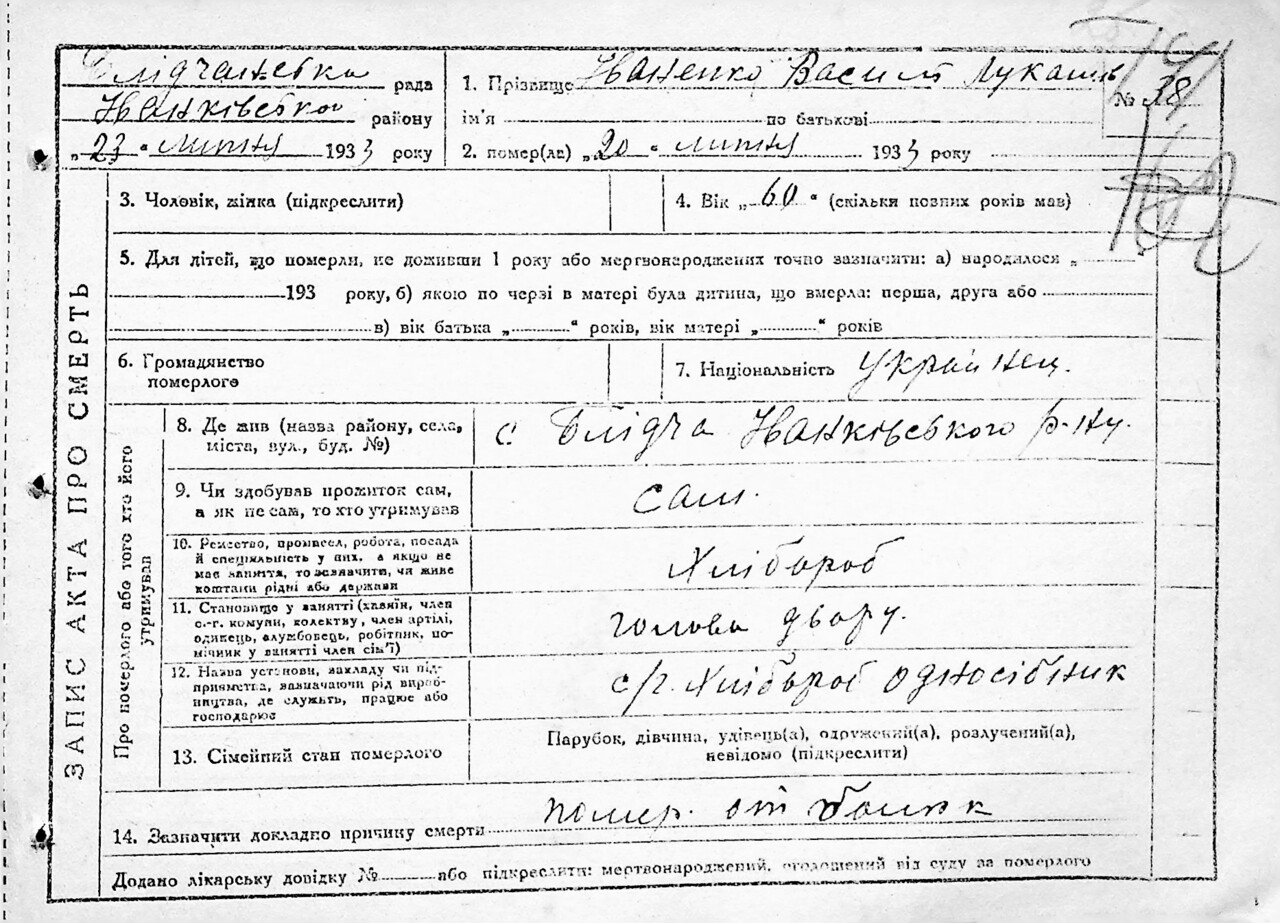 Блідчанська рада
Іванківського району
„23“ липня 1933 року
1. Прізвище Іваненко Василь Лукашів
ім'я по батькові
№ 38
2. помер(ла) „20“ липня 1933 року
ЗАПИС АКТА ПРО СМЕРТЬ
3. Чоловік, жінка (підкреслити)
4. Вік „60“ (скільки повних років мав)
5. Для дітей, що померли, не доживши 1 року або мертвонароджених точно зазначити: а) народилося „
193 року, б) якою по черзі в матері була дитина, що вмерла: перша, друга або
в) вік батька „ “ років, вік матері „ “ років
6. Громадянство
померлого
7. Національність Українец.
Про померлого або того хто його
утримував
8. Де жив (назва району, села,
міста, вул., буд. №)
с Блідча Іванківського р-ну.
9. Чи здобував прожиток сам,
а як не сам, то хто утримував
сам.
10. Ремество, промисел, робота, посада
й спеціяльність у них, а якщо не
має заняття, то зазначити, чи живе
коштами рідні або держави
Хлібороб
11. Становище у занятті (хазяїн, член
с.-г. комуни, колективу, член артілі,
одинець, службовець, робітник, по-
мічник у занятті член сім'ї)
голова двору.
12. Назва установи, закладу чи під-
приємства, зазначаючи рід вироб-
ництва, де служить, працює або
господарює
с/г. Хлібороб односібник
13. Сімейний стан померлого
Парубок, дівчина, удівець(а), одружений(а), розлучений(а),
невідомо (підкреслити)
14. Зазначити докладно причину смерти помер. от
Додано лікарську довідку № або підкреслити: мертвонароджений, оголошений від суду за померлого